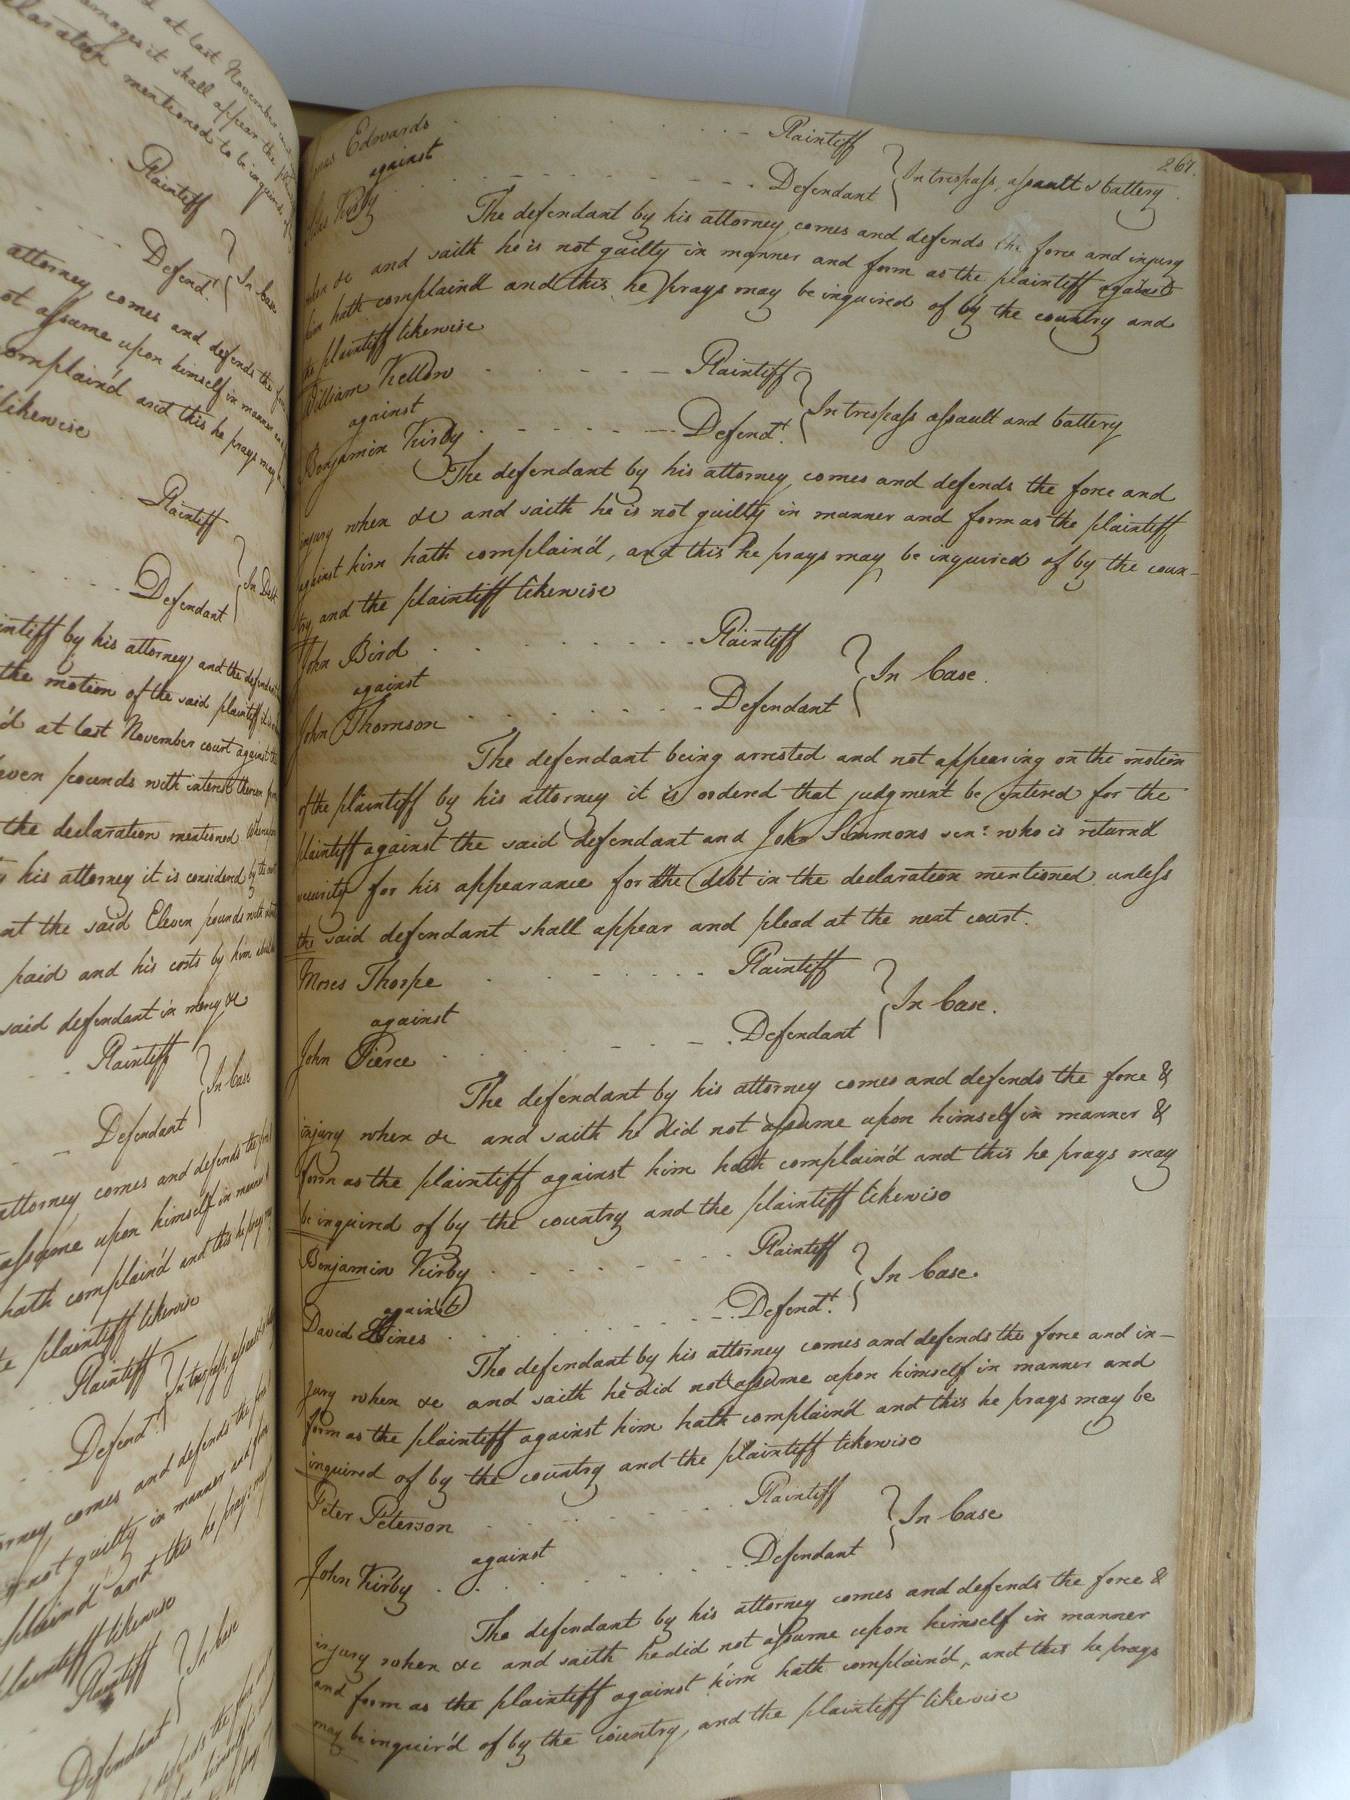 d at last November
amages it shall appear the
claration mentioned to be inquired of
Plaintiff
Defend.t } In Case
attorney comes and defends the
ot assume upon himself in manner
omplain'd and this he prays may
likewise
Plaintiff
Defendant } In Debt
intiff by his attorney, and the defendant
the motion of the said plaintiff it is
'd at last November court against the
even pounds with interest thereon from
the declaration mentioned
his attorney it is considered by the
at the said Eleven pounds with
paid and his costs by him
said defendant in mercy &c
Plaintiff
Defendant } In Case
attorney comes and defends the
assume upon himself in manner
hath complain'd and this he prays
e plaintiff likewise
Plaintiff
Defend.t } In trespass, assault
orney comes and defends the for
not guilty in manner and for
mplain'd and this he prays
plaintiff likewise
Plaintiff
Defendant } In Case
defends the
267.
Edwards Plaintiff
against } In trespass, assault & battery.
Kirby Defendant
The defendant by his attorney comes and defends the force and injury
when &c and saith he is not guilty in manner and form as the plaintiff against
him hath complain'd and this he prays may be inquired of by the country and
the plaintiff likewise
William Kellow Plaintiff
against } In trespass assault and battery
Benjamin Kirby Defend.t
The defendant by his attorney comes and defends the force and
injury when &c and saith he is not guilty in manner and form as the plaintiff
against him hath complain'd, and this he prays may be inquired of by the coun-
try and the plaintiff likewise
John Bird Plaintiff
against } In Case.
John Thomson Defendant
The defendant being arrested and not appearing on the motion
of the plaintiff by his attorney it is ordered that judgment be entered for the
plaintiff against the said defendant and John Simmons sen.r who is return'd
security for his appearance for the debt in the declaration mentioned unless
the said defendant shall appear and plead at the next court.
Moses Thorpe Plaintiff
against } In Case.
John Pierce Defendant
The defendant by his attorney comes and defends the force &
injury when &c and saith he did not assume upon himself in manner &
form as the plaintiff against him hath complain'd and this he prays may
be inquired of by the country and the plaintiff likewise
Benjamin Kirby Plaintiff
against } In Case.
David Hines Defend.t
The defendant by his attorney comes and defends the force and in-
jury when &c and saith he did not assume upon himself in manner and
form as the plaintiff against him hath complain'd and this he prays may be
inquired of by the country and the plaintiff likewise
Peter Peterson Plaintiff
against } In Case
John Kirby Defendant
The defendant by his attorney comes and defends the force &
injury when &c and saith he did not assume upon himself in manner
and form as the plaintiff against him hath complain'd, and this he prays
may be inquir'd of by the country, and the plaintiff likewise